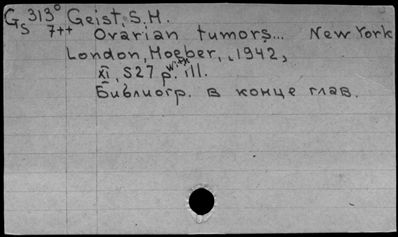 G 313° Geist, S.H.
S 7++ Ovarian tumors... New York
London, Hoeber, 1942,
XI, 527 p. with ill.
Библиогр. в конце глав.